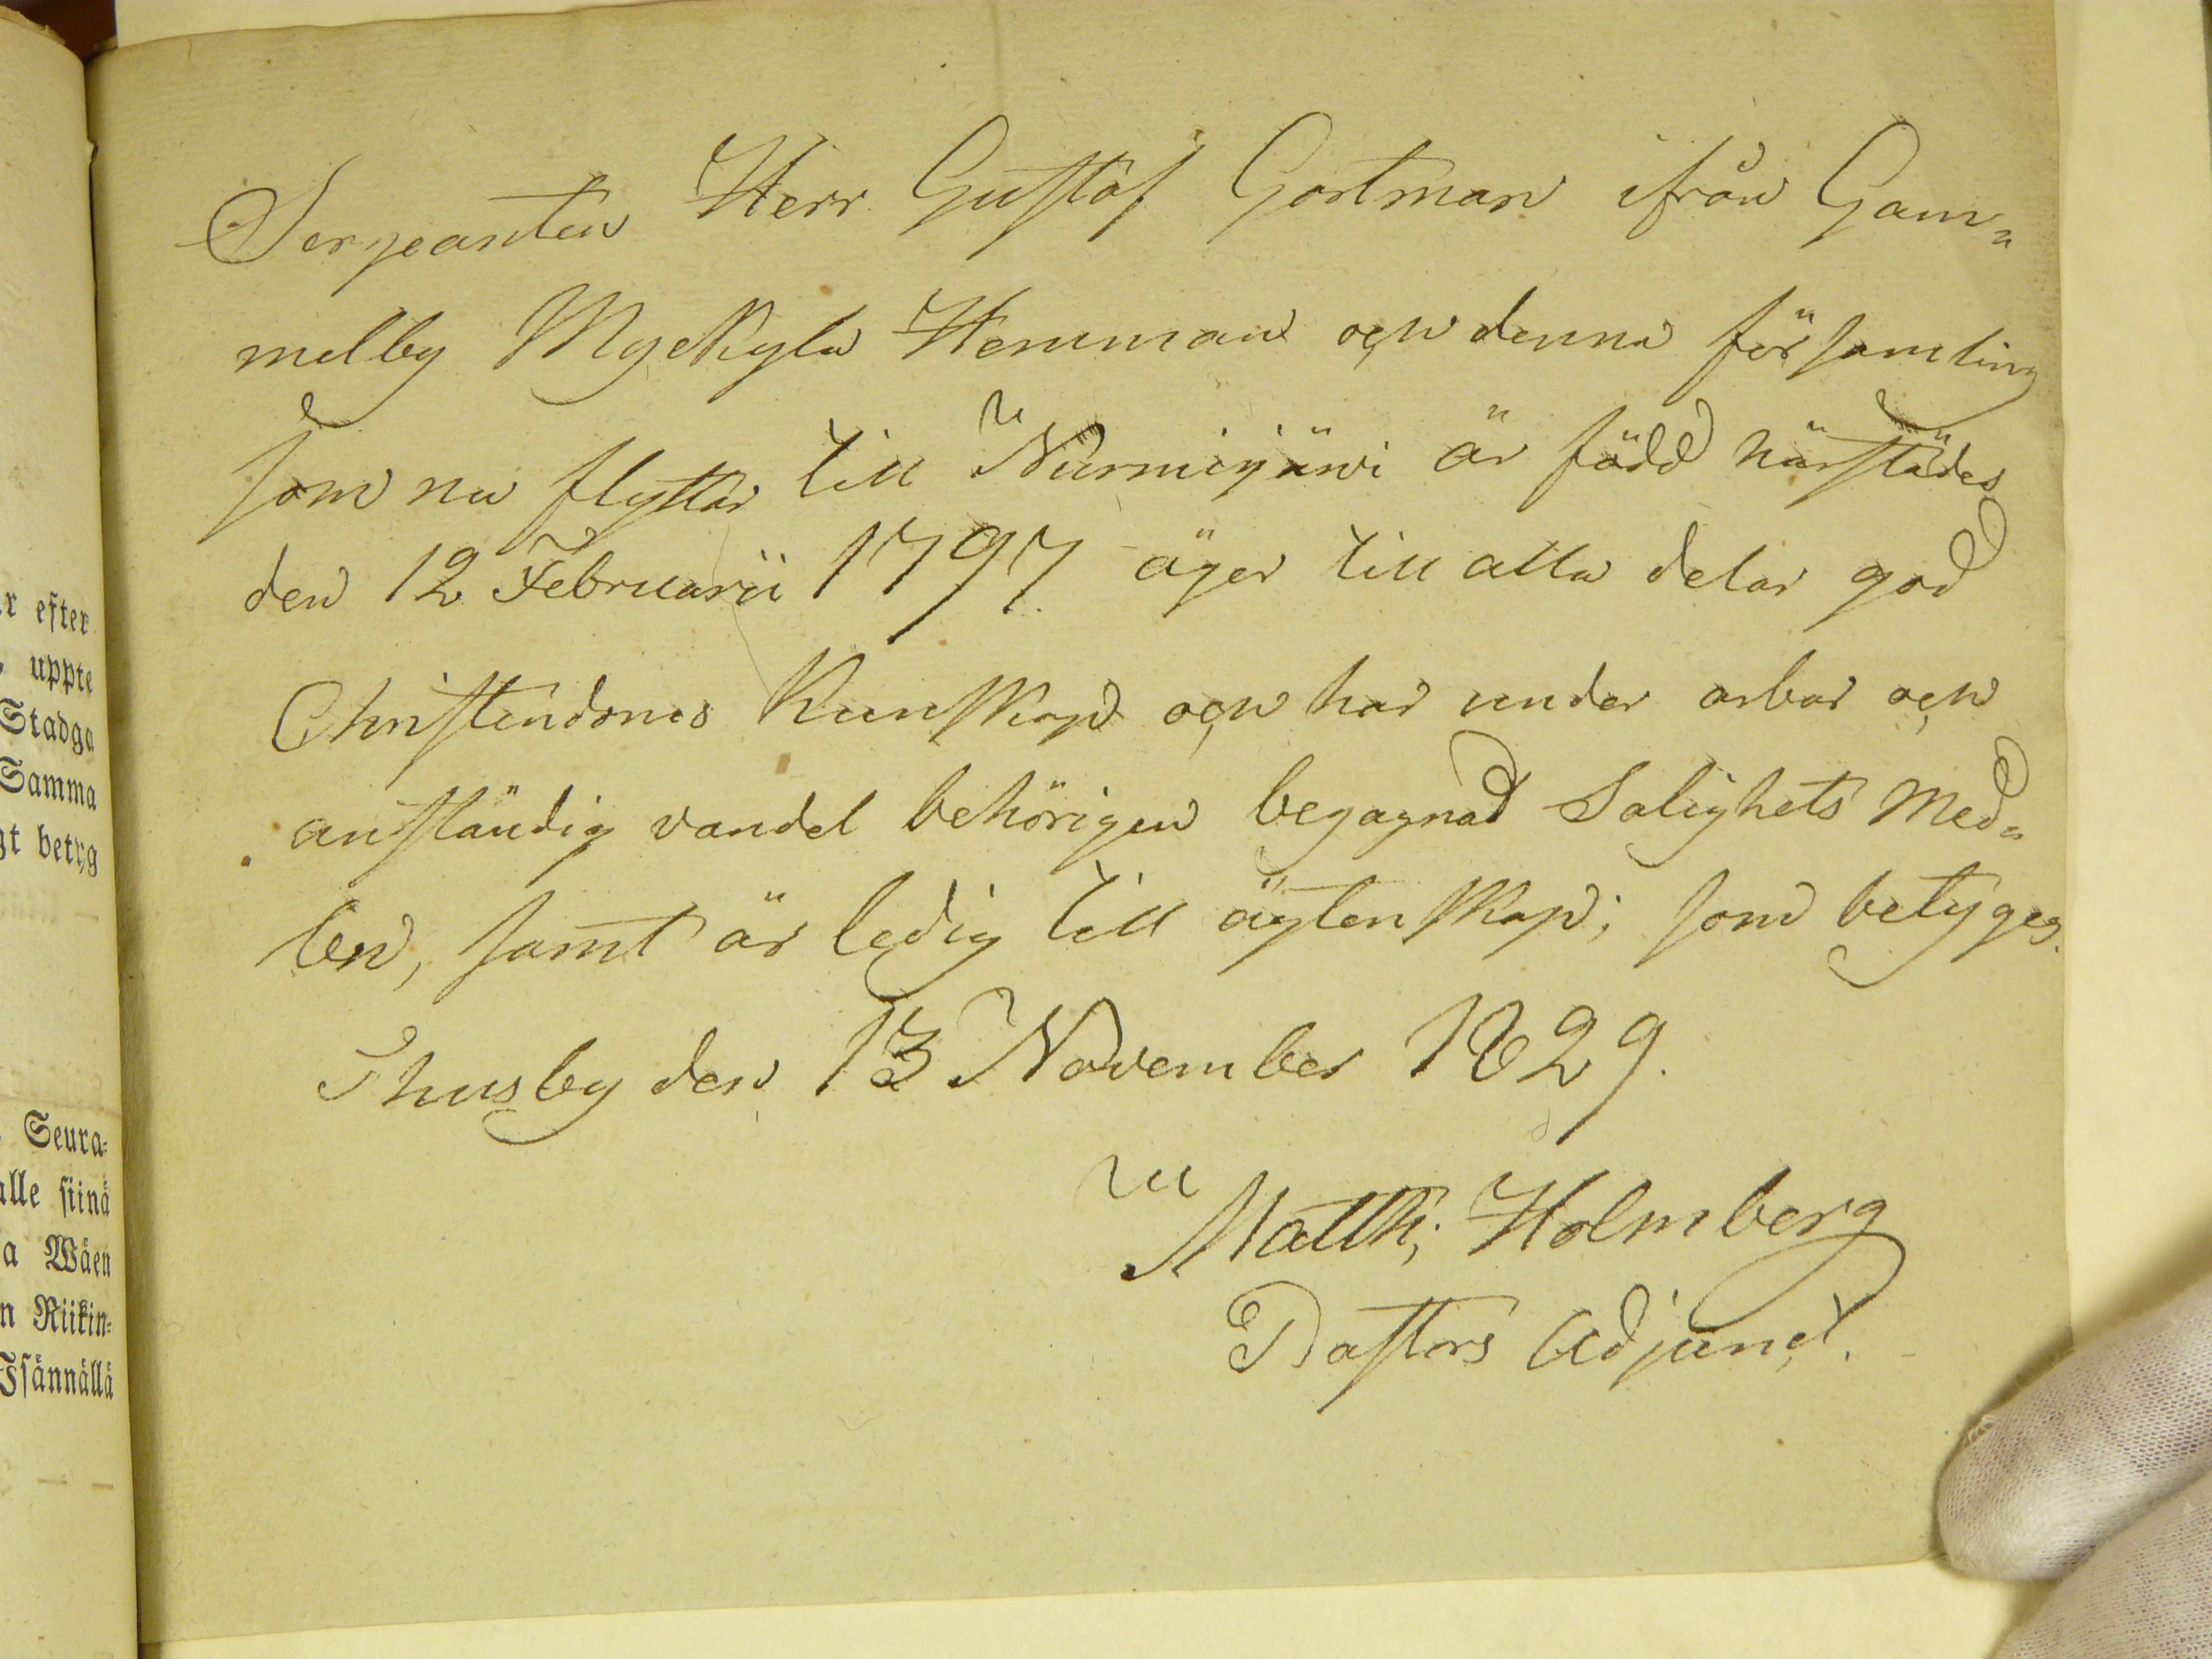 Sergeanten Herr Gustaf Gortman ifrån Gam=
melby Myckylä Hemman och denna församling
som nu flyttar till Nurmijärwi är född härstädes
den 12 Februarii 1797 äger till alla delar god
Christendoms Kunskap och har under ärbar och
anständig vandel behörigen begagnad Salighets Med=
len, samt är ledig till ägtenskap; som betyges.
Thusby den 13 November 1829.
Matth; Holmberg
Pastors Adjunct.
r efter
uppte
Stadga
Samma
gt betyg
Seura=
alle siinä
a Wäen
n Riikin=
Isännällä